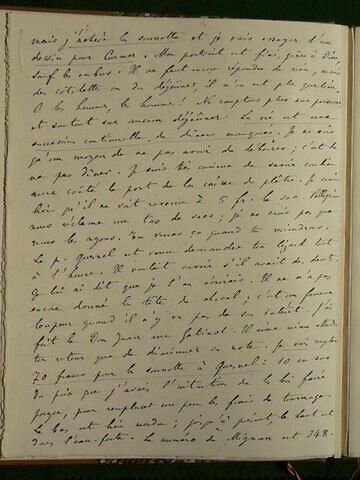 mais j'achève la sonnette et je vais essayer d'un
dessin pour Curmer. Mon portrait est fini, grâce à Dieu,
sauf les Il ne faut encore répondre de rien, mais
des côtelettes ou du déjeuner, il n'en est plus question.
O les hommes, les hommes ! Ne comptons plus sur personne
et surtout sur aucun déjeuner. La vie est une
succession continuelle de dîners manqués. Je ne vois
qu'un moyen de ne pas avoir de déboires ; c'est de
ne pas dîner. Je suis très curieux de savoir combien
aura coûté le port de la caisse de plâtre. Je crois
bien qu'il ne soit revenu à 5 fr. le sac. Pellegrin
nous réclame un tas de sacs ; je ne crois pas que
nous les ayons. Tu verras ça quand tu reviendras.
Le p. Quesnel est venu demander ton lézard tout
à l'heure. Il voulait savoir s'il avait de dents.
Je lui ai dit que je t'en écrirais. Il ne m'a pas
encore donné la tête de chacal ; c'est un fameux
loupeur quand il n'y va pas de son intérêt. J'ai
fait le Don Juan avec Gatinot. Il aime mieux attendre
ton retour que de diminuer sa note. Je vais compter
70 francs pour la sonnette à Quesnel : 10 en sus
du prix que j'avais l'intention de lui faire
payer, pour remplacer un peu les frais de tournage.
Le bas est bien mordu ; jusqu'à présent, le haut est
dans l'eau-forte. Le numéro du Mignon est 348.